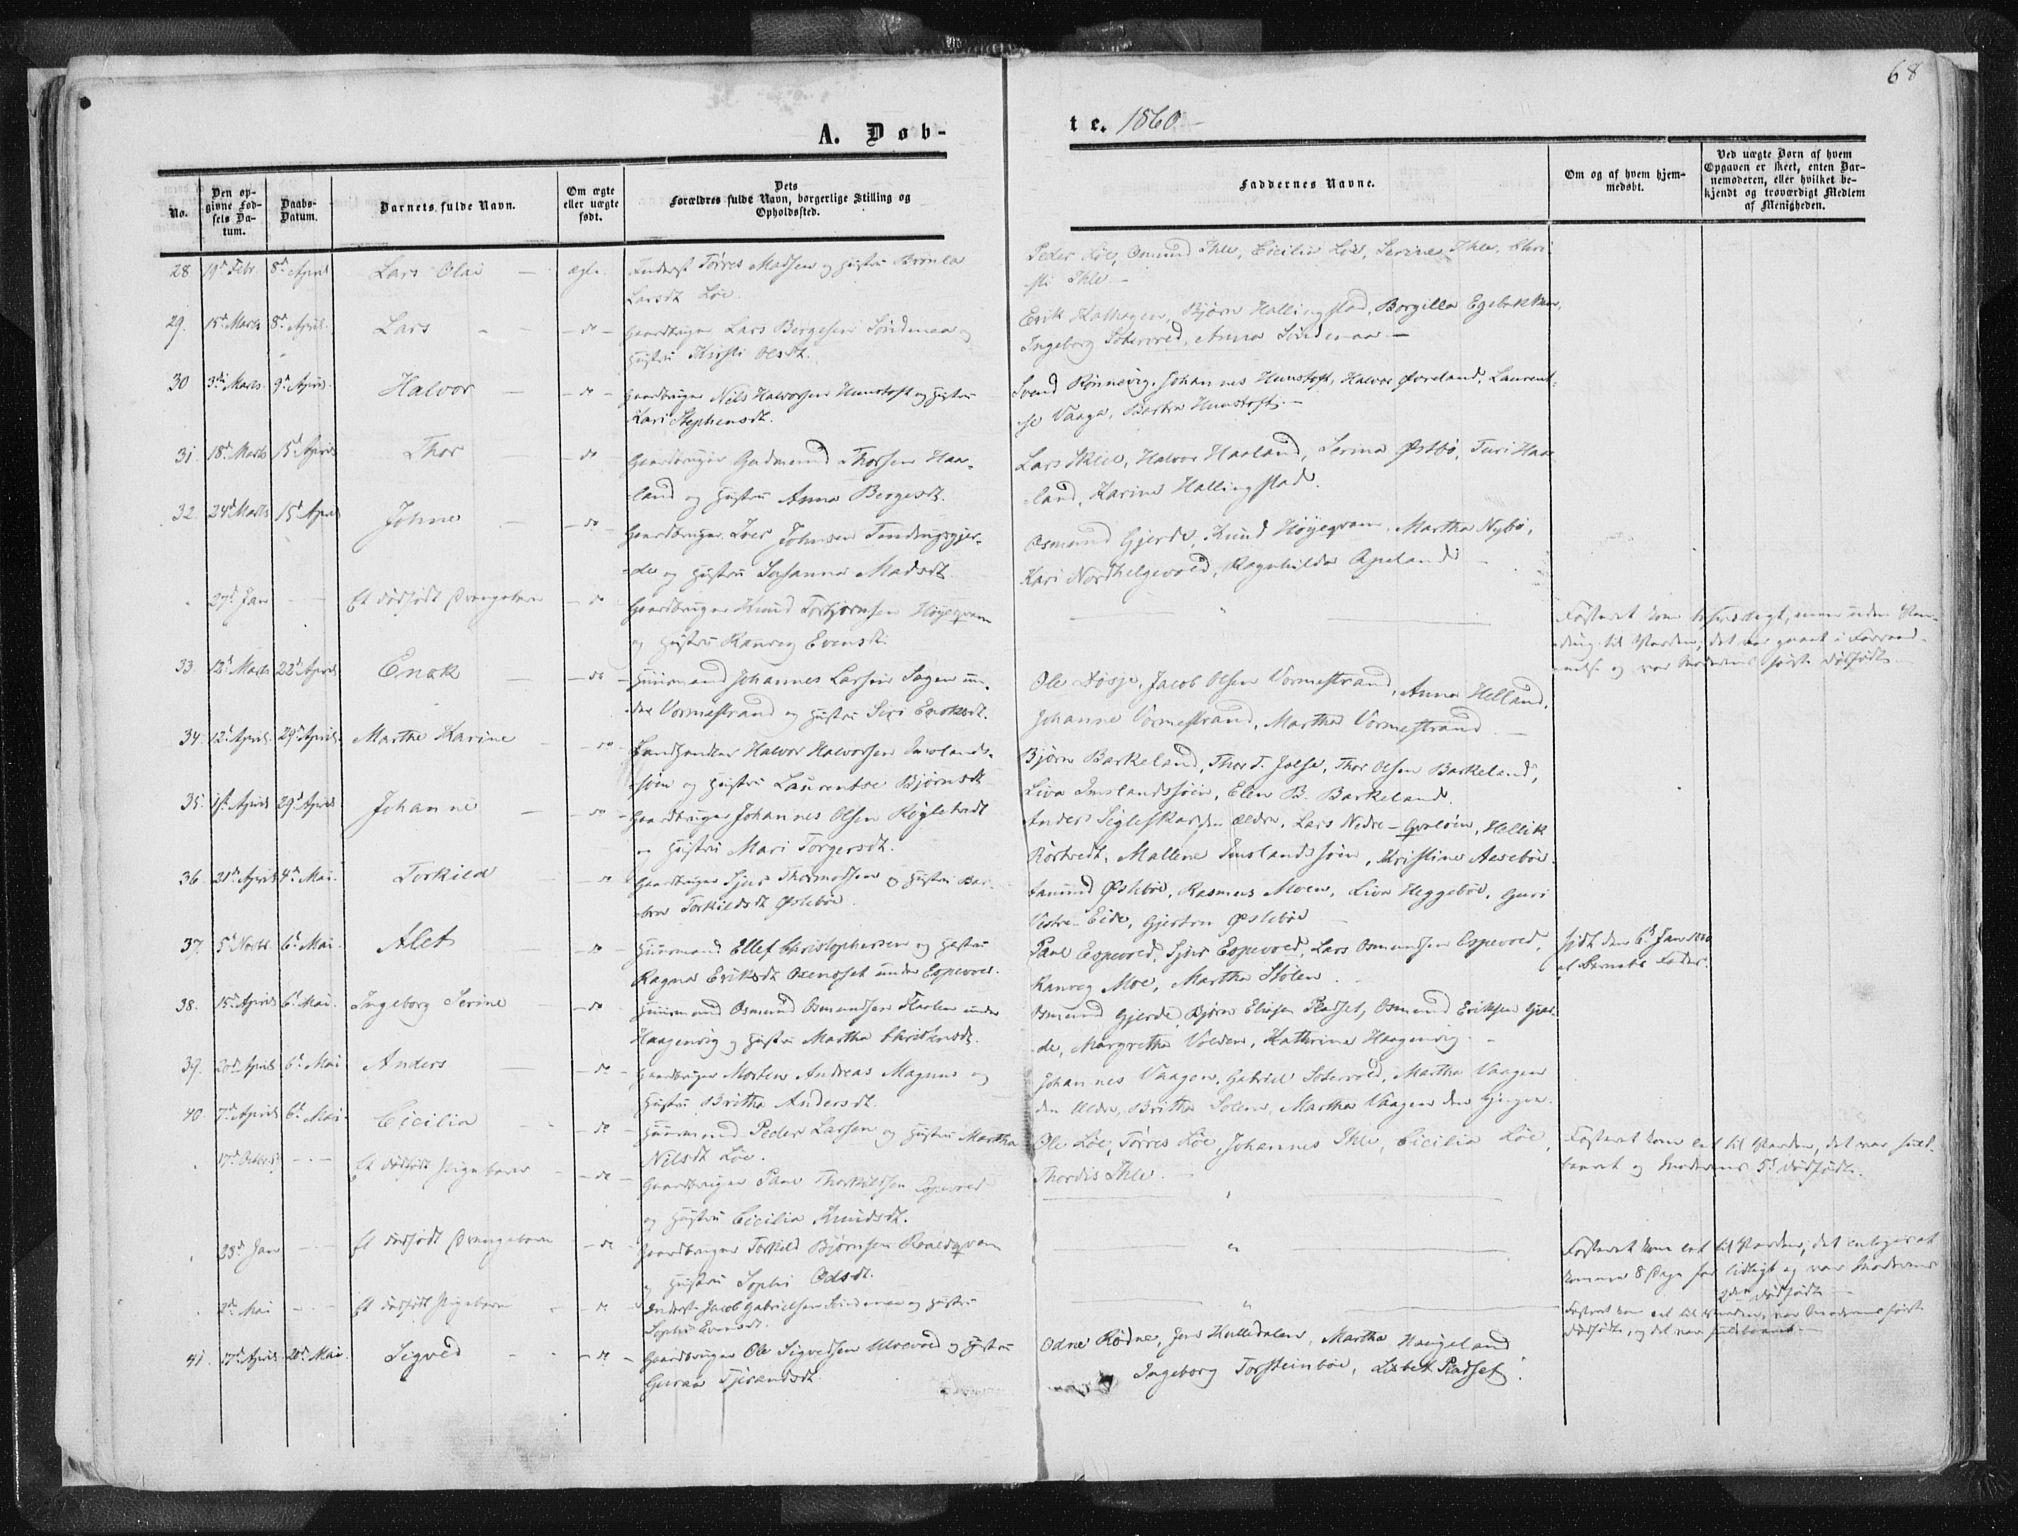 68
A. Døb-
te. 1860
No.
Den op-
givne Fød-
sels Da-
tum.
Daabs-
Datum.
Barnets fulde Navn.
Om ægte
eller uægte
født.
Dets
Forældres fulde Navn, borgerlige Stilling og
Opholdssted.
Faddernes Navne.
Om og af hvem hjem-
medøbt.
Ved uægte Børn af hvem
Opgaven er skeet, enten Bar-
nemoderen, eller hvilket be-
kjendt og troværdigt Medlem
af Menigheden.
28. 19d Febr. 8d April Lars Olai – ægte. Inderst Tørres Madsen og Hustru
Larsdt Løe.
Peder Løe, Osmund Ihle, Cicilia Løe, Serine Ihle,
Ihle.
29. 15d Marts 8d April. Lars – do – Gaardbruger Lars Bergesen Søndenaa og
Hustru Kirsti Olsdt.
Erik Kalhagen, Bjørn Hallingstad, Borgilla
Ingeborg Søtevold, Anna Søndenaa –
30 3die Marts. 9d April. Halvor – do – Gaardbruger Nils Halvorsen Hunstoft og Hustru
Kari Stephensdt.
Svend Rønnevig, Johannes Hunstoft, Halvor Øvreland, Laurent-
se Vaage, Hunstoft. –
31. 18d Marts 15d April Thor – do – Gaardbruger Gudmund Thorsen Haa-
land og Hustru Anna Bergesdt.
Lars Sklie, Halvor Haaland, Serina Østbø, Turi Haa-
land, Karine Hallingstad.
32. 24d Marts 15d April Johne – do – Gaardbruger Johnsen Tendingsgjer-
de og Hustru Susanna Madsdt.
Osmund Gjerde, Knud Høyeqvam, Martha Nybø,
Kari Nordhelgevold, Ragnhilda Apeland –
27d Jan – Et dødfødt Drengebarn – do Gaardbruger Knud Torbjørnsen Høyeqvam
og Hustru Ranveg Evensdt.
Fosteret kom
til Verden, det var gaaet i Forraad-
nelse og var Moderens første dødfødte. –
33 12d Marts 22d April Enok – do – Huusmand Johannes Larsen Sagen un-
der Vormestrand og Hustru Siri Enoksdt.
Ole Døsje, Jacob Olsen Vormestrand, Anna Helland,
Johanne Vormestrand, Martha Vormestrand. –
34. 12d April 29d April. Marthe Karine – do – Landhandler Halvor Halvorsen Imslands-
søen og Hustru Laurentse Bjørnsdt
Bjørn Barkeland, Thor T. Jelse, Thor Olsen Barkeland,
Liva Imslandssøen, Elen B. Barkeland.
35. 1ste April 29d April Johanne – do – Gaardbruger Johannes Olsen
og Hustru Mari Torgersdt.
Anders Sigleskar den ældre, Lars Nedre-Qvaløen, Hellik
Rørtvedt, Mallene Imslandssøen, Kristine Aasebøe.
36. 21d April 4de Mai. Torkild – do Gaardbruger Sjur Thormodsen og Hustru Bar-
bra Torkildsdt Østebøe.
Østebøe, Rasmus Moen, Liva Heggebøe, Guri
Vestre-Eide, Gjertru Østebøe –
37. 5d Novbr. 6d Mai. Alet – do Huusmand Ellef Christophersen og Hustru
Ragna Eriksdt under Espevold.
Paul Espevold, Sjur Espevold, Lars Osmundsen Espevold,
Ranveg Moe, Martha Stølen
født den 6d Jan 1860
af Barnets Fader.
38. 15d April 6d Mai. Ingeborg Serine – do Huusmand Osmund Osmundsen under
Haagenvig og Hustru Martha Christensdt.
Osmund Gjerde, Bjørn Eliasen Pladset, Osmund Eriksen Gjer-
de, Margretha Volden, Kathrina Haagenvig. –
39. 20d April 6d Mai Anders – do – Gaardbruger Morten Andreas Magnus og
Hustru Britha Andersdt.
Johannes Vaagen, Gabriel Søtevold, Martha Vaagen
den Ældre, Britha Solem, Martha Vaagen den yngre.
40. 7d April 6d Mai. Cicilia – do – Huusmand Peder Larsen og Hustru Martha
Nilsdt Løe.
Ole Løe, Tørres Løe, Johannes Ihle, Cicilia Løe,
Thordis Ihle. –
17d – Et dødfødt Pigebarn – do – Gaardbruger Paul Thorkildsen Espevold
og Hustru Cicilia Knudsdt.
Fosteret kom let til Verden, det var fuld-
baaret og Moderens 5d dødfødte.
23d Jan – Et dødfødt Drengebarn – do – Gaardbruger Torkild Bjørnsen Roaldqvam
og Hustru Sophi Odsdt.
Fosteret kom let til Verden, det antoges at
komme 8 Dage for tidligt og var Moderens
2den dødfødte –
2d Mai – Et dødfødt Pigebarn – do Inderst Jacob Gabrielsen Søndenaa og Hustru
Sophi Evensdt.
Fosteret kom let til Verden, var Moderens første
dødfødte, og det var fuldbaaret. –
41. 17d April 20d Mai. Sigved – do – Gaardbruger Ole Sigvedsen Ulvevold og Hustru
Guroa Tjerandsdt
Odne Rødne, Jens Hulledalen, Martha Haugeland
Ingeborg Torsteinbøe, Lisbet Pladset.